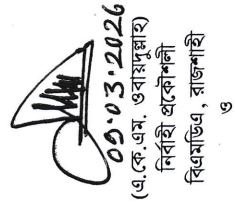 09.03.2026
(এ.কে.এম. ওবায়দুল্লাহ)
নির্বাহী প্রকৌশলী
বিএমডিএ, রাজশাহী
ও